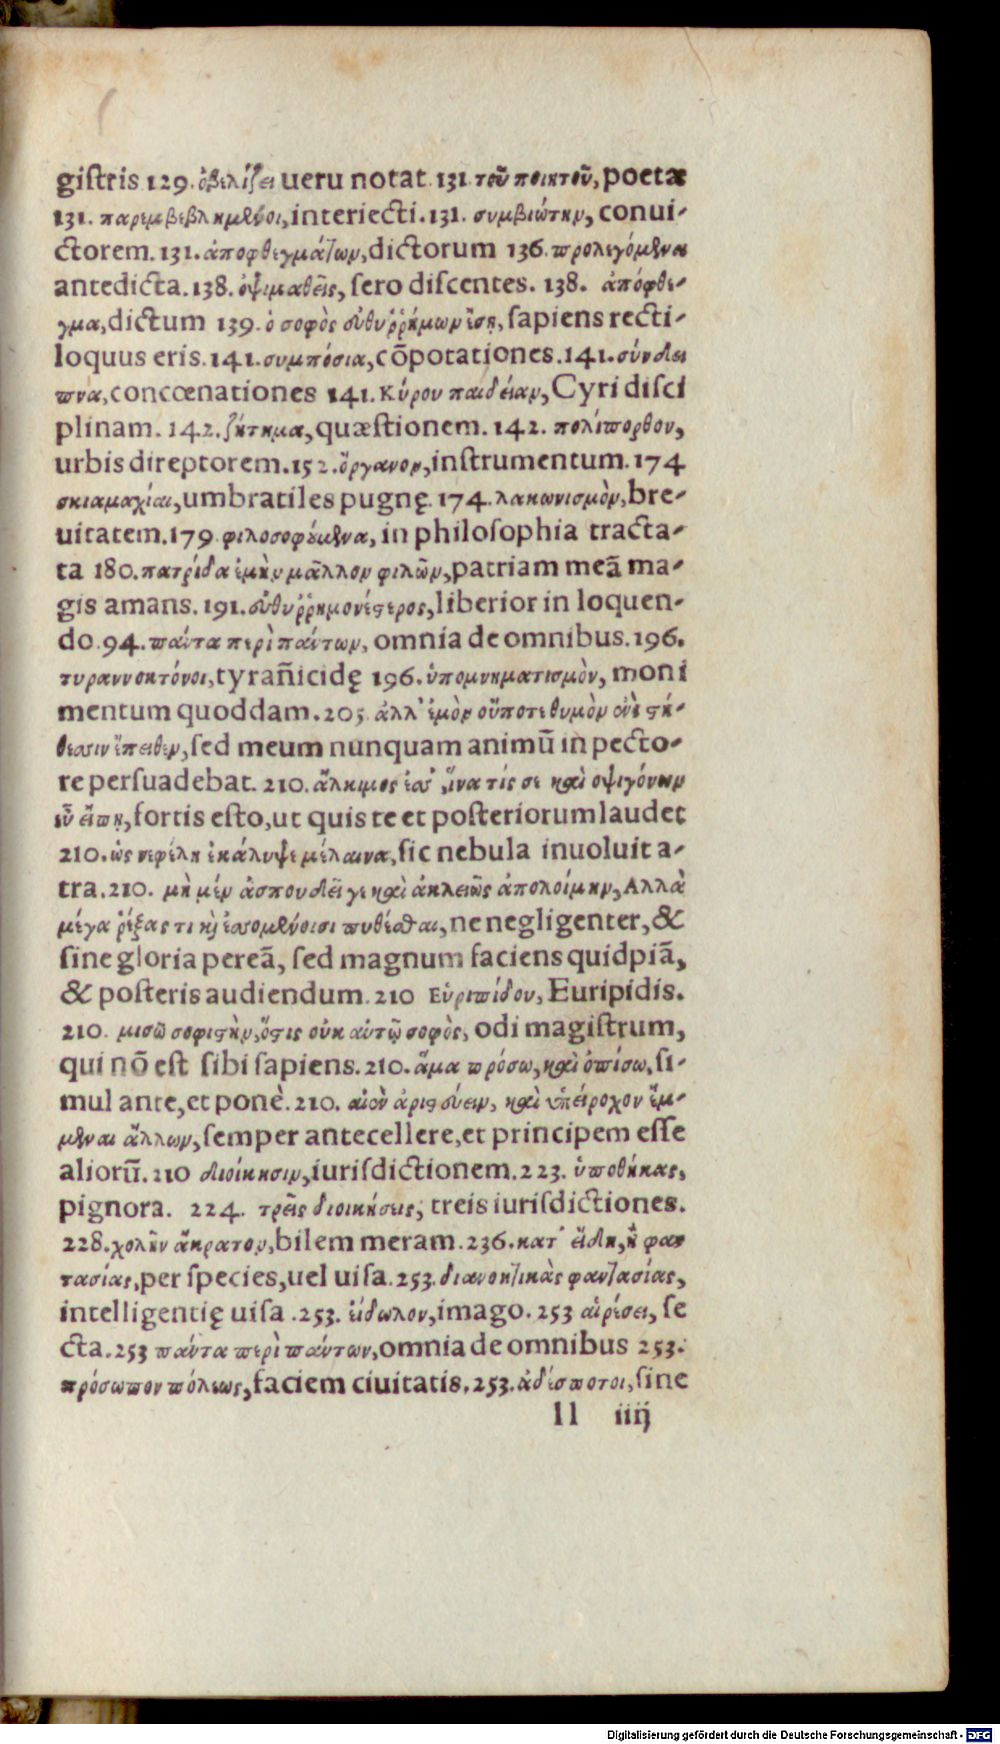 giſtris 129. ὀβελίζει ueru notat 131 τοῦ ποιητοῦ, poetæ
131. παρεμβεβλημένοι, interiecti. 131. συμβιώτην, conui-
ctorem. 131. ἀποφθεγμάτων, dictorum 136. προλεγόμενα
antedicta. 138. ὀψιμαθεῖς, ſero diſcentes. 138. ἀπόφθε-
γμα, dictum 139. ὁ σοφὸς εὐθυῤῥήμων ἔσῃ, ſapiens recti-
loquus eris. 141. συμπόσια, cõpotationes. 141. σύνδει
πνα, concœnationes 141. Κύρου παιδείαν, Cyri diſci
plinam. 142. ζήτημα, quæſtionem. 142. πολίπορθον,
urbis direptorem. 152. ὄργανον, inſtrumentum. 174
σκιαμαχίαι, umbratiles pugnę. 174. λακωνισμὸν, bre-
uitatem. 179 φιλοσοφούμενα, in philoſophia tracta-
ta 180. πατρίδα ἐμὴν μᾶλλον φιλῶν, patriam meã ma-
gis amans. 191. εὐθυῤῥημονέστερος, liberior in loquen-
do. 94. πάντα περὶ πάντων, omnia de omnibus. 196.
τυραννοκτόνοι, tyrañicidę 196. ὑπομνηματισμὸν, moni
mentum quoddam. 205 ἀλλ' ἐμὸν οὔποτε θυμὸν ἐνὶ στή-
θεσσιν ἔπειθεν, ſed meum nunquam animũ in pecto-
re perſuadebat. 210. ἄλκιμος ἔσσ' ἵνα τίς σε καὶ ὀψιγόνων
εὖ εἴπῃ, fortis eſto, ut quis te et poſteriorum laudet
210. ὡς νεφέλη ἐκάλυψε μέλαινα, ſic nebula inuoluit a-
tra. 210. μὴ μὲν ἀσπουδεί γε καὶ ἀκλειῶς ἀπολοίμην, Αλλὰ
μέγα ῥέξας τι καὶ ἐσσομένοισι πυθέσθαι, ne negligenter, &
ſine gloria pereã, ſed magnum faciens quidpiã,
& poſteris audiendum. 210 Εὐριπίδου, Euripidis.
210. μισῶ σοφιστὴν, ὅστις οὐκ αὑτῷ σοφὸς, odi magiſtrum,
qui nõ eſt ſibi ſapiens. 210. ἅμα πρόσω, καὶ ὀπίσω, ſi-
mul ante, et ponè. 210. αἰὲν ἀριστεύειν, καὶ ὑπείροχον ἔμ-
μεναι ἄλλων, ſemper antecellere, et principem eſſe
aliorũ. 210 διοίκησιν, iuriſdictionem. 223. ὑποθήκας,
pignora. 224. τρεῖς διοικήσεις, treis iuriſdictiones.
228. χολὴν ἄκρατον, bilem meram. 236. κατ' εἴδη, ἢ φαν
τασίας, per ſpecies, uel uiſa. 253. διανοητικὰς φαντασίας,
intelligentię uiſa . 253. εἴδωλον, imago. 253 αἱρέσει, ſe
cta. 253 πάντα περὶ πάντων, omnia de omnibus 253.
πρόσωπον πόλεως, faciem ciuitatis. 253. ἀδέσποτοι, ſine
ll iiij
Digitalisierung gefördert durch die Deutsche Forschungsgemeinschaft - DFG